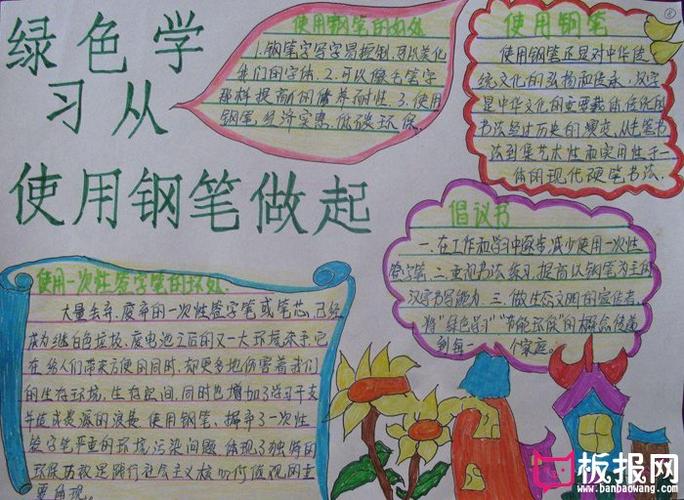 绿色学
习从
使用钢笔做起
使用钢笔的好处
1.钢笔字写字易控制,可以美化
我们的字体.2.可以像毛笔字
那样提高你的修养耐性.3.使用
钢笔,经济实惠.低碳环保.
使用钢笔
使用钢笔还是对中华传
统文化的弘扬和传承,汉字
是中华文化的重要载体,传统的
书法经过历史的演变,从毛笔书
法到集艺术性和实用性于一
体的现代硬笔书法.
倡议书
一.在工作和学习中逐步减少使用一次性
签字笔.二.重视书法练习,提高以钢笔为主的
汉字书写能力.三.做生态文明的宣传者,
将“绿色学习”“节能环保”的概念传递
到每一个家庭。
使用一次性签字笔的坏处.
大量丢弃.废弃的一次性签字笔或笔芯,已经
成为继白色垃圾.废电池之后的又一大环境杀手.它
在给人们带来方便的同时,却更多地伤害着我们
的生存环境,生存空间,同时也增加了学习开支
并造成资源的浪费.使用钢笔、摒弃了一次性
签字笔严重的环境污染问题.体现了独特的
环保历程是践行社会主义核心价值观的重
要体现。
8
板报网
www.banbaowang.com